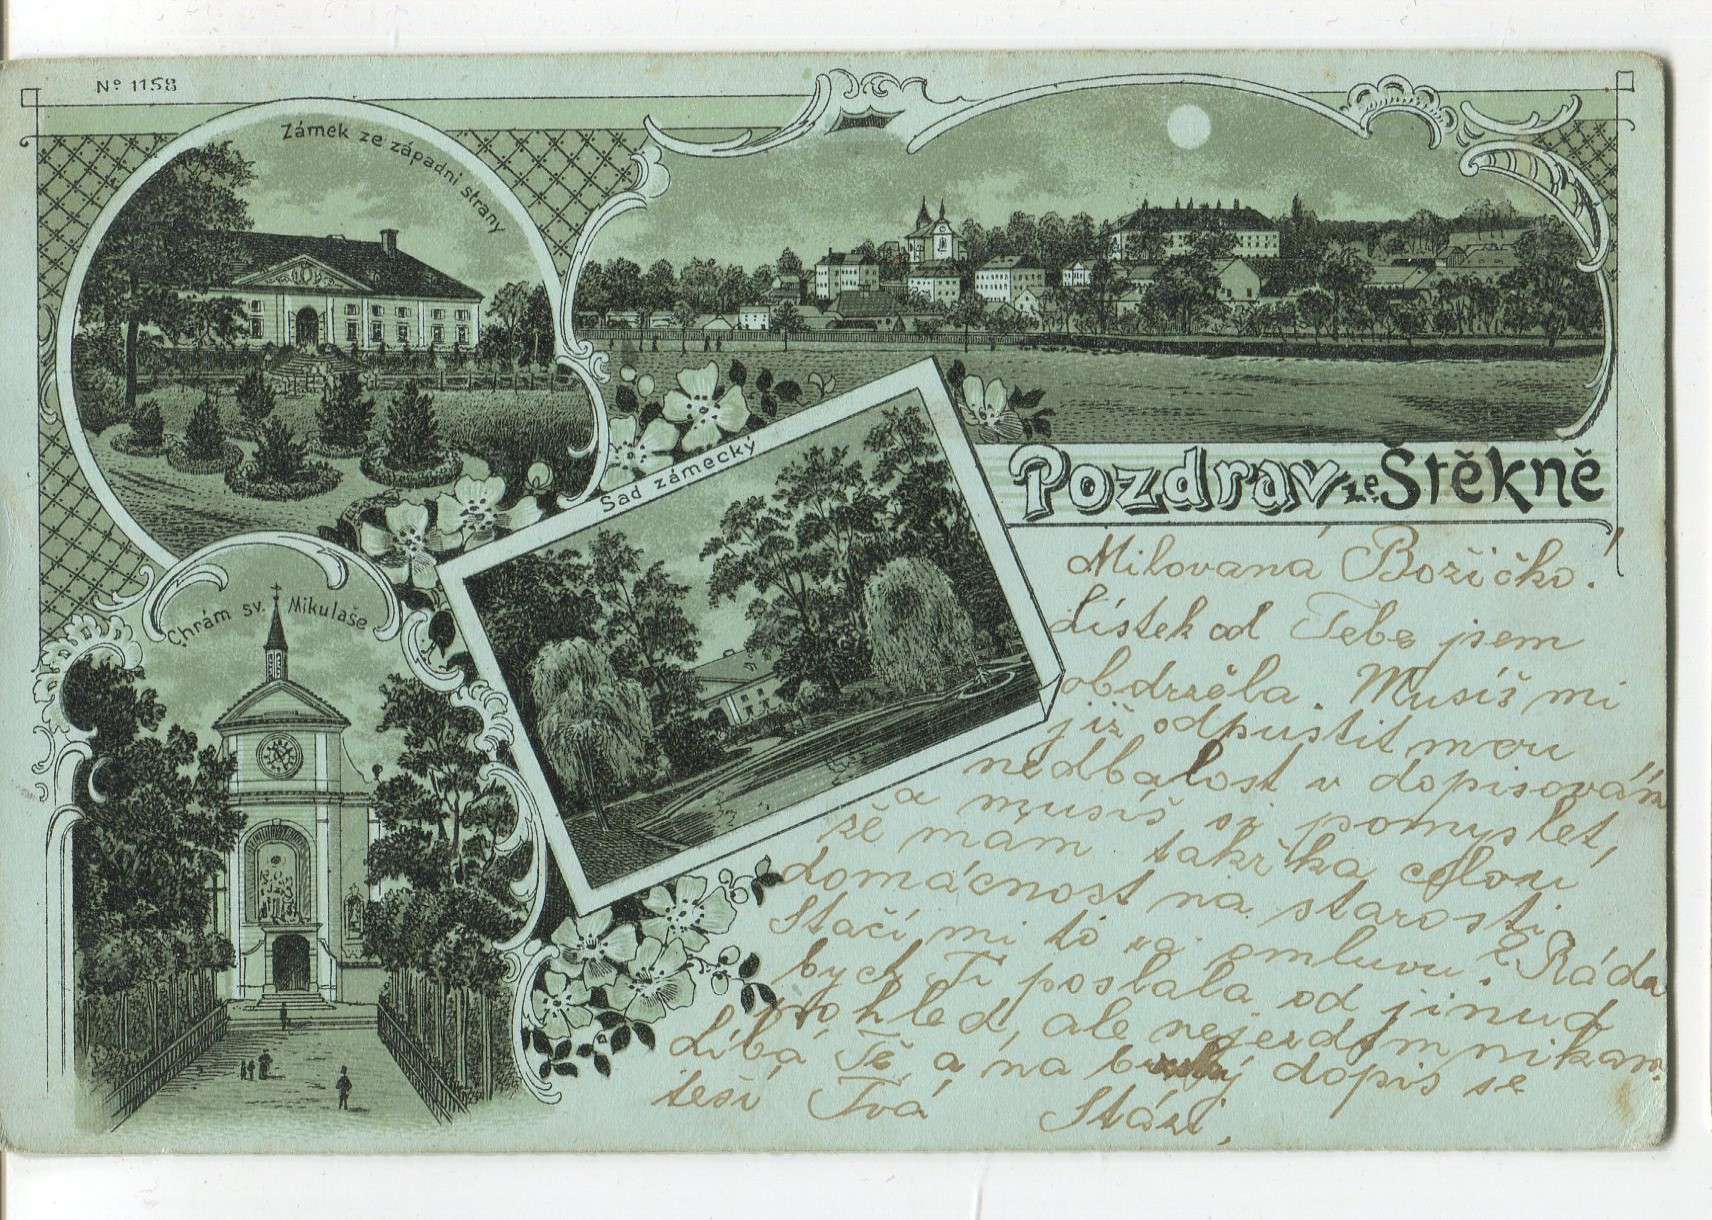 No 1158
Zámek ze západní strany
Pozdrav ze Štěkně
Sad zámecký
Chrám sv. Mikulaše
Milovaná Božičko!
Lístek od Tebe jsem
obdržela. Musíš mi
již odpustit mou
nedbalost v dopisování
a musíš si pomyslet,
že mám takřka celou
domácnost na starosti.
Stačí mi to na omluvu? Ráda
bych Ti poslala od jinud
pohled, ale nejezdím nikam.
Líbá Tě a na brzký dopis se
těší Tvá Stázi.